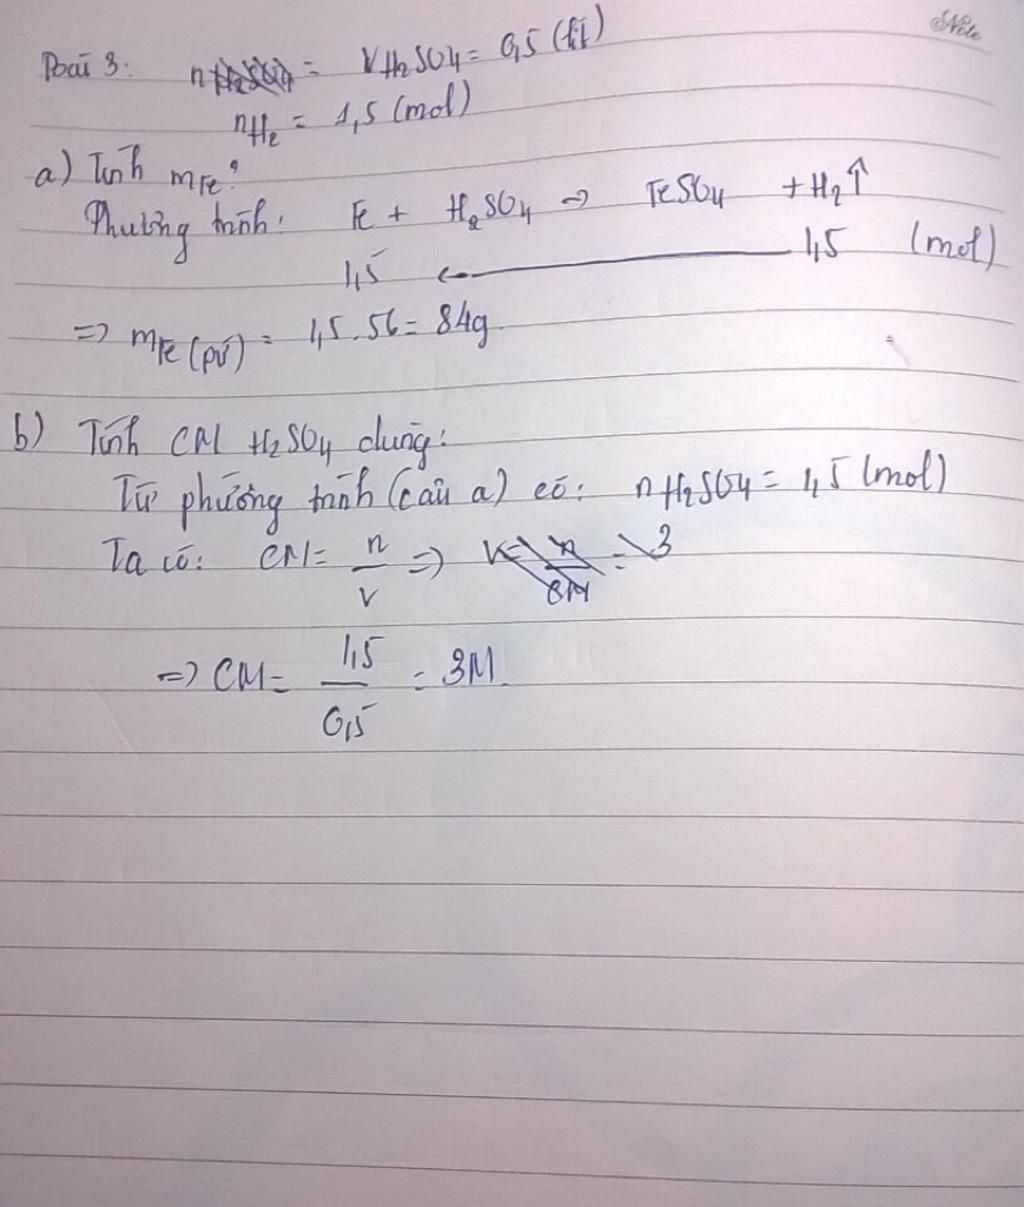 Note
Bài 3: n = VH2SO4 = 0,5 (lít)
nH2 = 1,5 (mol)
a) Tính mFe?
Phương trình: Fe + H2SO4 => FeSO4 + H2↑
1,5 <—— 1,5 (mol)
=> mFe (pứ) = 1,5.56 = 84g.
b) Tính CM H2SO4 dùng:
Từ phương trình (câu a) có: nH2SO4 = 1,5 (mol)
Ta có: CM = n/V =>
=> CM = 1,5/0,5 = 3M.